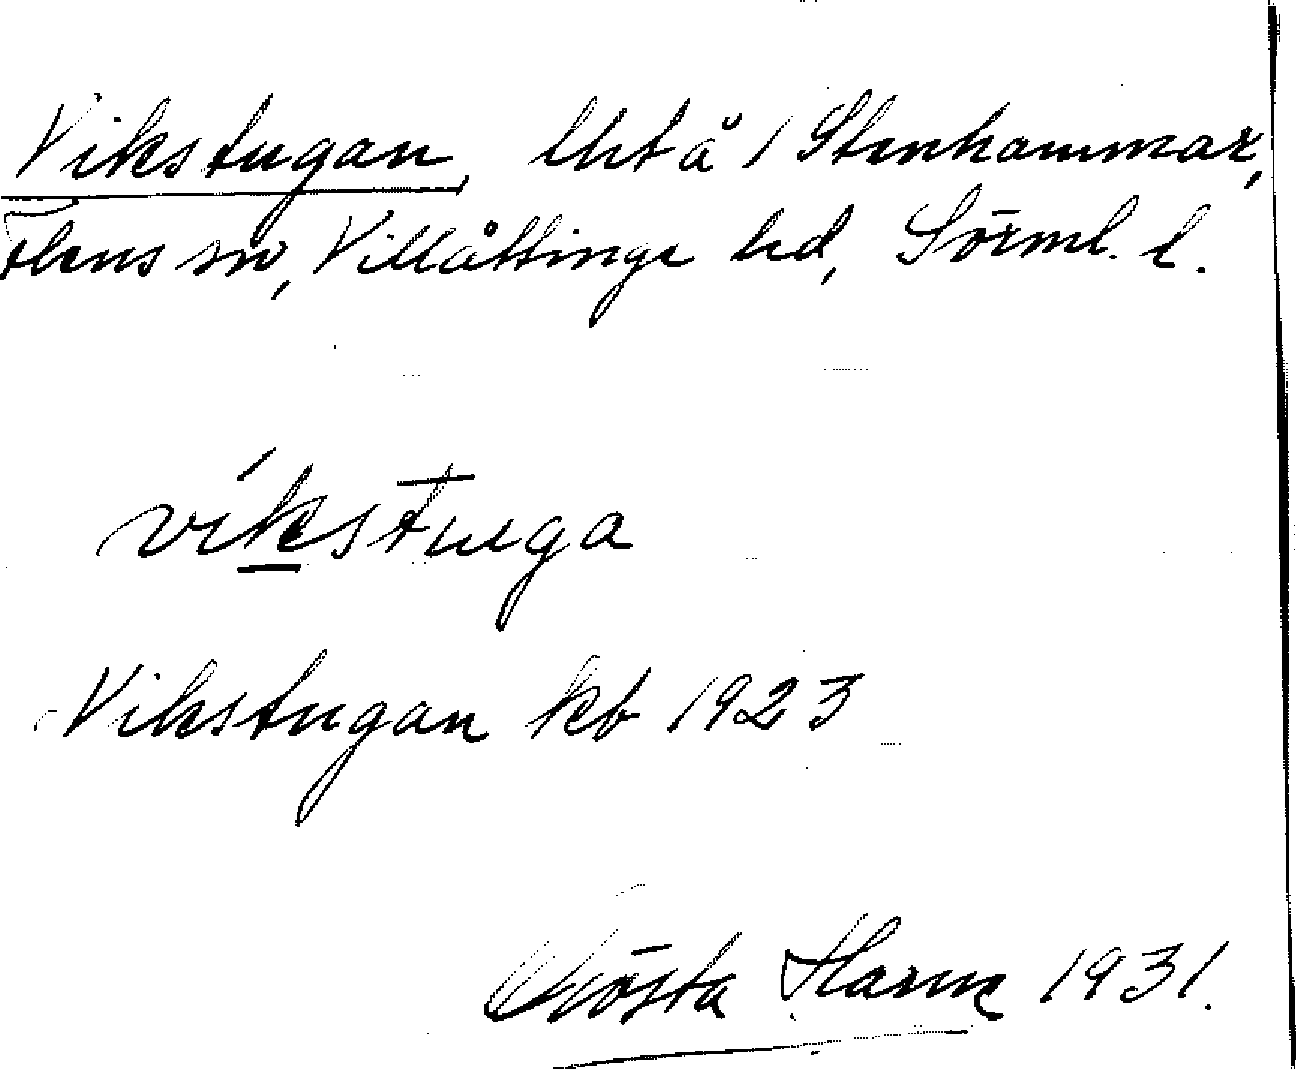 Vikstugan, lht å 1 Stenhammar,
Flens sn, Villåttinge hd, Sörml. l.
víkstuga
Vikstugan kb 1923
Gösta Harne 1931.